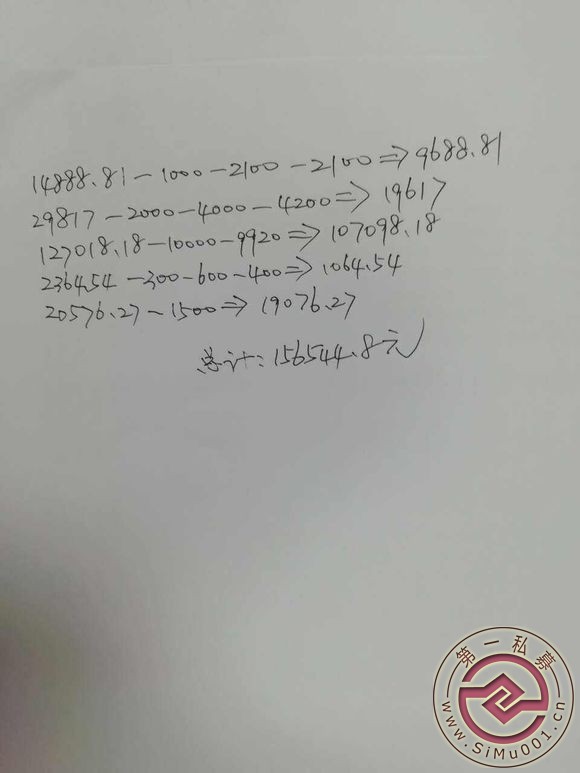 14888.81-1000-2100-2100⇒9688.81
29817-2000-4000-4200⇒19617
127018.18-10000-9920⇒107098.18
2364.54-300-600-400⇒1064.54
20576.27-1500⇒19076.27
总计:156544.8元
第一私募
www.SiMu001.cn